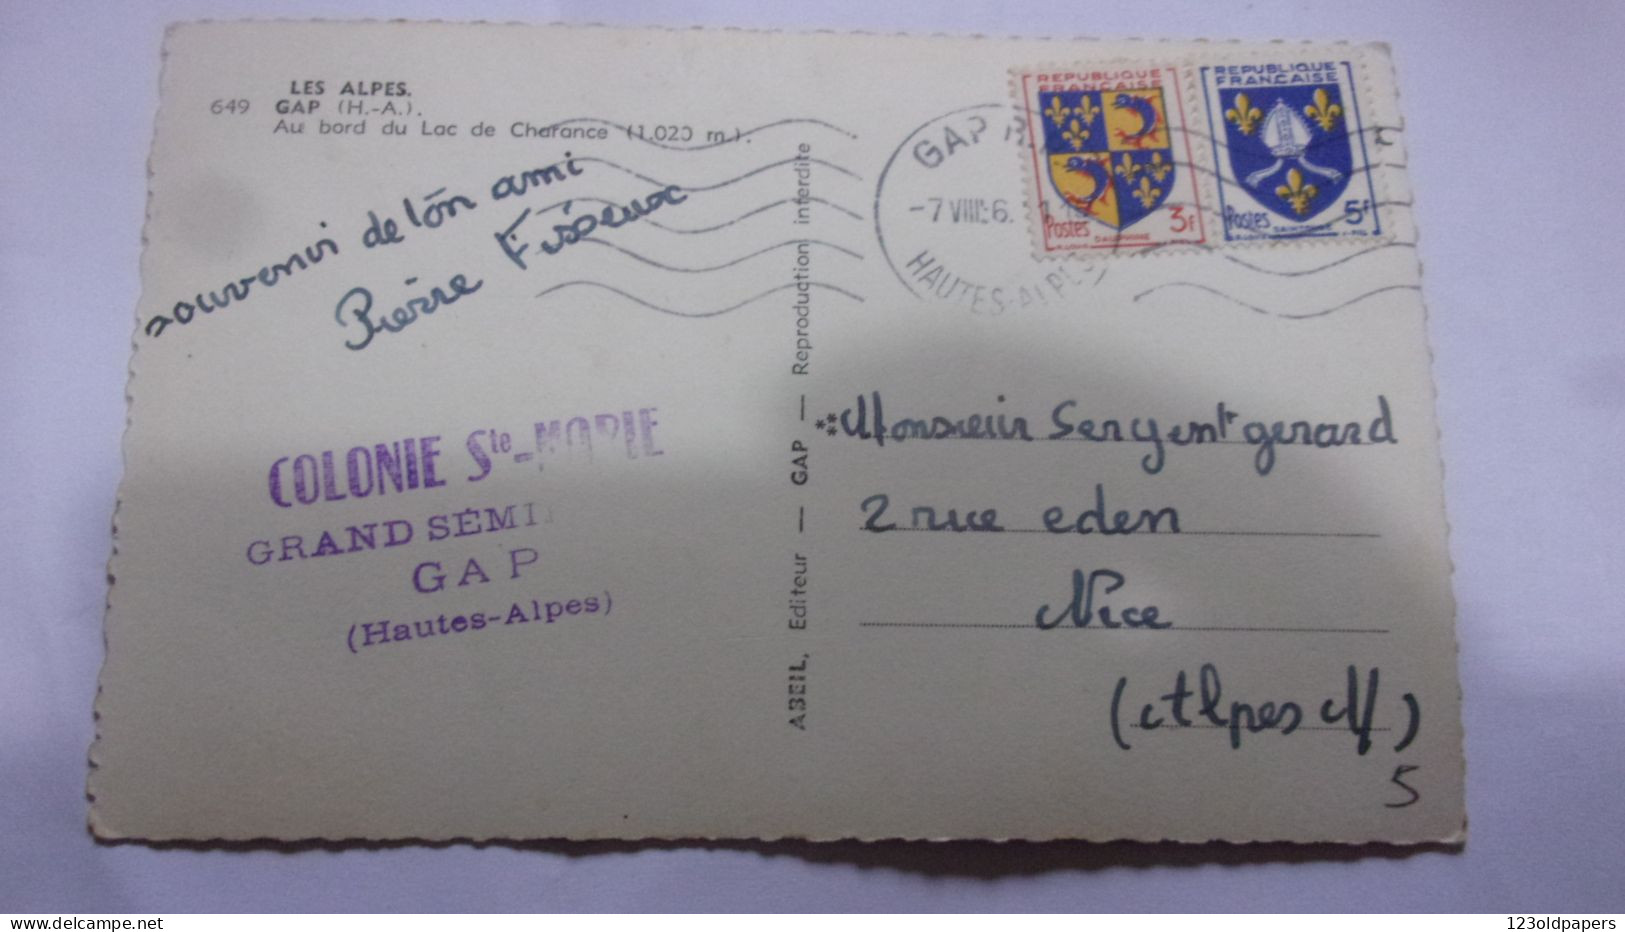 LES ALPES.
649 GAP (H.-A.).
Au bord du Lac de Charance (1.020 m.).
souvenir de ton ami
Pierre
COLONIE Ste-MARIE
GRAND SÉMI
GAP
(Hautes-Alpes)
ABEIL, Editeur — GAP — Reproduction interdite
GAP
-7 VIII
HAUTES-ALPES
REPUBLIQUE
FRANÇAISE
Postes 3F
DAUPHINE
REPUBLIQUE
FRANÇAISE
Postes 5F
SAINTONGE
Monsieur Sergent gerard
2 rue eden
Nice
(Alpes M)
5
123oldpapers